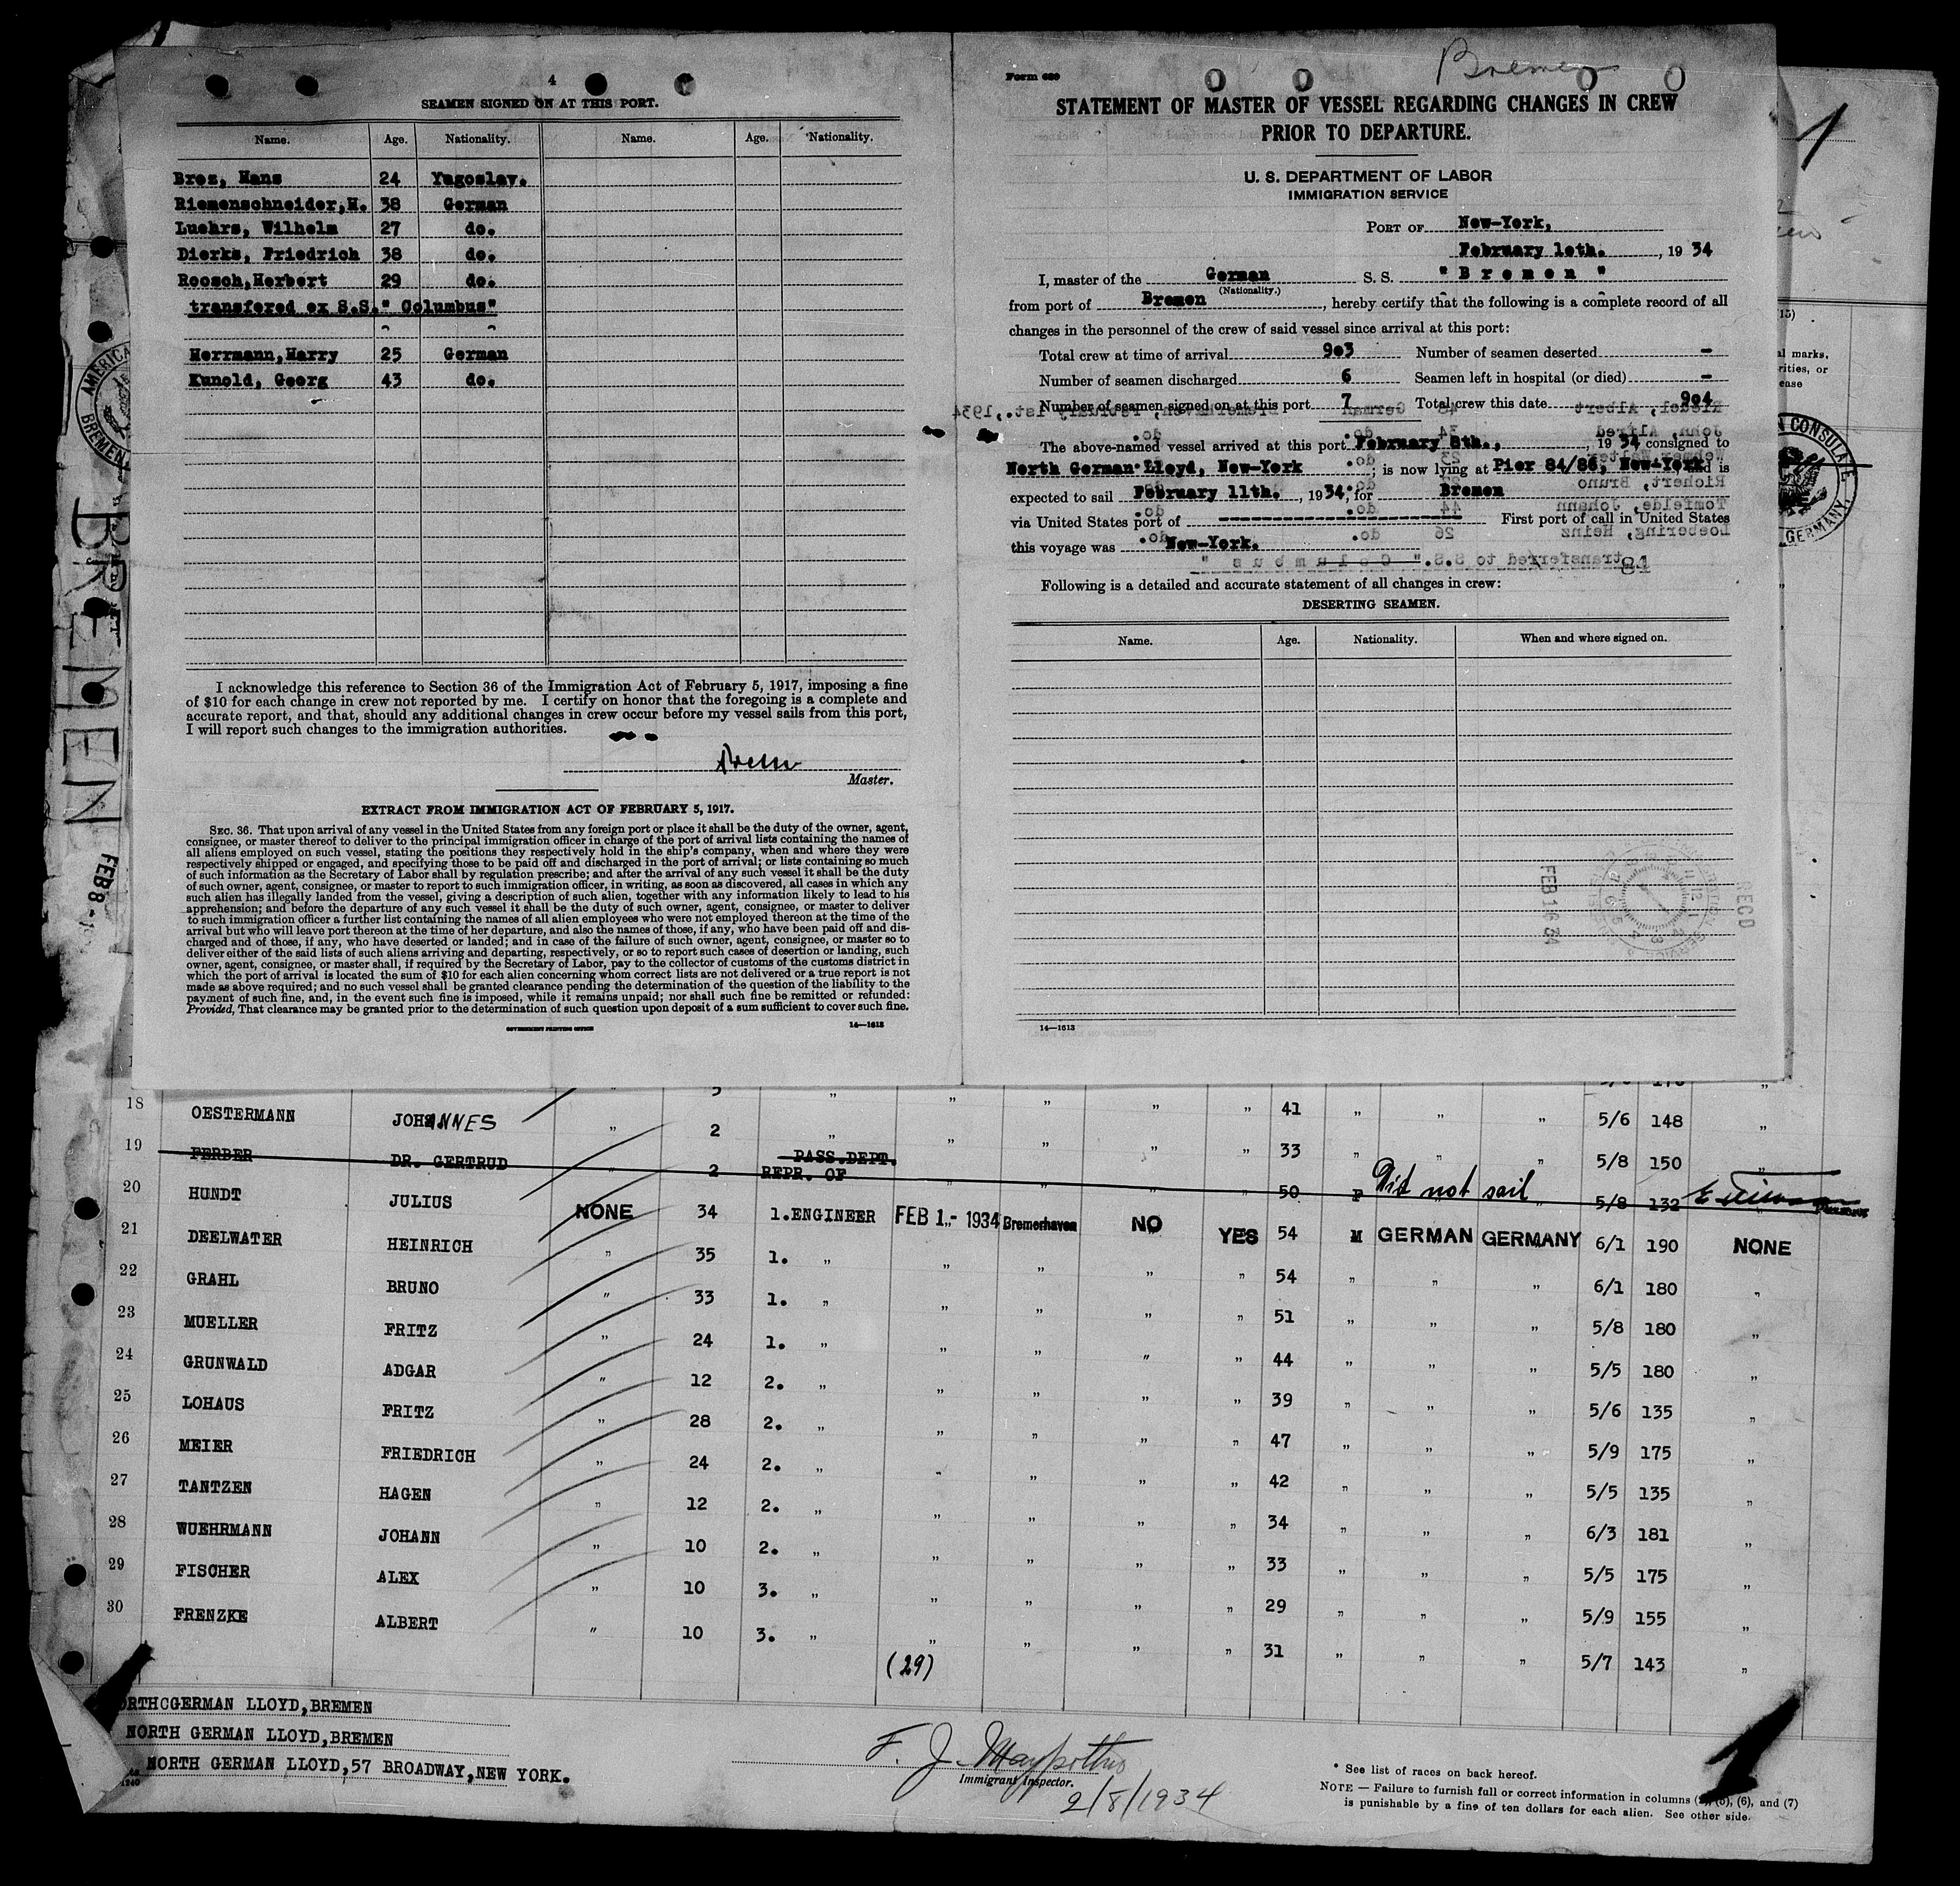 4
SEAMEN SIGNED ON AT THIS PORT.
Name. Age. Nationality. Name. Age. Nationality.
Broz, Hans 24 Yugoslav.
Riemenschneider,H. 38 German
Luehrs, Wilhelm 27 do.
Dierks, Friedrich 38 do.
Roosch,Herbert 29 do.
transfered ex S.S." Columbus"
Herrmann,Harry 25 German
Kunold, Georg 43 do.
I acknowledge this reference to Section 36 of the Immigration Act of February 5, 1917, imposing a fine
of $10 for each change in crew not reported by me. I certify on honor that the foregoing is a complete and
accurate report, and that, should any additional changes in crew occur before my vessel sails from this port,
I will report such changes to the immigration authorities.
Master.
EXTRACT FROM IMMIGRATION ACT OF FEBRUARY 5, 1917.
SEC. 36. That upon arrival of any vessel in the United States from any foreign port or place it shall be the duty of the owner, agent,
consignee, or master thereof to deliver to the principal immigration officer in charge of the port of arrival lists containing the names of
all aliens employed on such vessel, stating the positions they respectively hold in the ship's company, when and where they were
respectively shipped or engaged, and specifying those to be paid off and discharged in the port of arrival; or lists containing so much
of such information as the Secretary of Labor shall by regulation prescribe; and after the arrival of any such vessel it shall be the duty
of such owner, agent, consignee, or master to report to such immigration officer, in writing, as soon as discovered, all cases in which any
such alien has illegally landed from the vessel, giving a description of such alien, together with any information likely to lead to his
apprehension; and before the departure of any such vessel it shall be the duty of such owner, agent, consignee, or master to deliver
to such immigration officer a further list containing the names of all alien employees who were not employed thereon at the time of the
arrival but who will leave port thereon at the time of her departure, and also the names of those, if any, who have been paid off and dis-
charged and of those, if any, who have deserted or landed; and in case of the failure of such owner, agent, consignee, or master so to
deliver either of the said lists of such aliens arriving and departing, respectively, or so to report such cases of desertion or landing, such
owner, agent, consignee, or master shall, if required by the Secretary of Labor, pay to the collector of customs of the customs district in
which the port of arrival is located the sum of $10 for each alien concerning whom correct lists are not delivered or a true report is not
made as above required; and no such vessel shall be granted clearance pending the determination of the question of the liability to the
payment of such fine, and, in the event such fine is imposed, while it remains unpaid; nor shall such fine be remitted or refunded:
Provided, That clearance may be granted prior to the determination of such question upon deposit of a sum sufficient to cover such fine.
GOVERNMENT PRINTING OFFICE 14—1613
Bremen
Form 680
STATEMENT OF MASTER OF VESSEL REGARDING CHANGES IN CREW
PRIOR TO DEPARTURE.
U. S. DEPARTMENT OF LABOR
IMMIGRATION SERVICE
PORT OF New-York,
February 1oth. , 19 34
I, master of the German S. S. " B r e m e n "
(Nationality.)
from port of Bremen , hereby certify that the following is a complete record of all
changes in the personnel of the crew of said vessel since arrival at this port:
Total crew at time of arrival 9o3 Number of seamen deserted -
Number of seamen discharged 6 Seamen left in hospital (or died) -
Number of seamen signed on at this port 7 Total crew this date 9o4
The above-named vessel arrived at this port February 8th., 19 34 consigned to
North German Lloyd, New-York ; is now lying at Pier 84/86, New-York, and is
expected to sail February 11th. , 1934, for Bremen
via United States port of First port of call in United States
this voyage was New-York.
Following is a detailed and accurate statement of all changes in crew:
DESERTING SEAMEN.
Name. Age. Nationality. When and where signed on.
REC'D
FEB 16 34
14—1613
1
BREMEN
FEB 8 - 1
AMERICA
BREMEN
N CONSULATE
GERMANY
(15)
al marks,
rities, or
ease
18 OESTERMANN JOHANNES „ 2 „ „ „ „ „ 41 „ „ „ 5/6 148 „
19 FERBER DR. GERTRUD „ 2 REPR. OF PASS.DEPT. „ „ „ „ 33 „ „ „ 5/8 150 „
50 F Dit not sail „ 5/8 132
20 HUNDT JULIUS NONE 34 1.ENGINEER FEB 1 - 1934 Bremerhaven NO YES 54 M GERMAN GERMANY 6/1 190 NONE
21 DEELWATER HEINRICH „ 35 1. „ „ „ „ „ 54 „ „ „ 6/1 180 „
22 GRAHL BRUNO „ 33 1. „ „ „ „ „ 51 „ „ „ 5/8 180 „
23 MUELLER FRITZ „ 24 1. „ „ „ „ „ 44 „ „ „ 5/5 180 „
24 GRUNWALD ADGAR „ 12 2. „ „ „ „ „ 39 „ „ „ 5/6 135 „
25 LOHAUS FRITZ „ 28 2. „ „ „ „ „ 47 „ „ „ 5/9 175 „
26 MEIER FRIEDRICH „ 24 2. „ „ „ „ „ 42 „ „ „ 5/5 135 „
27 TANTZEN HAGEN „ 12 2. „ „ „ „ „ 34 „ „ „ 6/3 181 „
28 WUEHRMANN JOHANN „ 10 2. „ „ „ „ „ 33 „ „ „ 5/5 175 „
29 FISCHER ALEX „ 10 3. „ „ „ „ „ 29 „ „ „ 5/9 155 „
30 FRENZKE ALBERT „ 10 3. „ „ „ „ „ 31 „ „ „ 5/7 143 „
(29)
ORTHCGERMAN LLOYD,BREMEN
NORTH GERMAN LLOYD,BREMEN
NORTH GERMAN LLOYD,57 BROADWAY,NEW YORK.
F. J.
Immigrant Inspector.
2/8/1934
* See list of races on back hereof.
NOTE — Failure to furnish full or correct information in columns (5), (6), and (7)
is punishable by a fine of ten dollars for each alien. See other side.